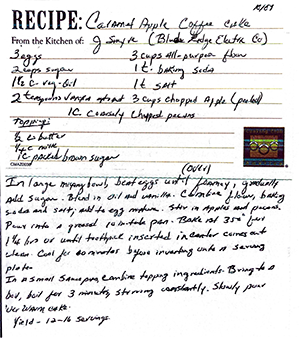 10/07
RECIPE: Caramel Apple Coffee Cake
From the Kitchen of: J Smyre (Blue Ridge Electric Co)
3 eggs 3 cups all-purpose flour
2 cups sugar 1 t. baking soda
1½ C. veg. oil 1 t. salt
2 teaspoons vanilla 3 cups Chopped Apple (peeled)
1C. Coarsely Chopped pecans
Topping:
½ c butter
¼ c milk
1C packed brown sugar
(over)
In large mixing bowl, beat eggs until foamy, gradually
add sugar. Blend in oil and vanilla. Combine flour, baking
soda and salt; add to egg mixture. Stir in Apples and pecans.
Pour into a greased 10 in tube pan. Bake at 350° for
1¼ hrs or until toothpick inserted in center comes out
clean. Cool for 10 minutes before inverting onto a serving
plate.
In a small Saucepan, combine topping ingredients. Bring to a
boil, boil for 3 minutes, stirring constantly. Slowly pour
over warm cake.
Yield - 12-16 servings